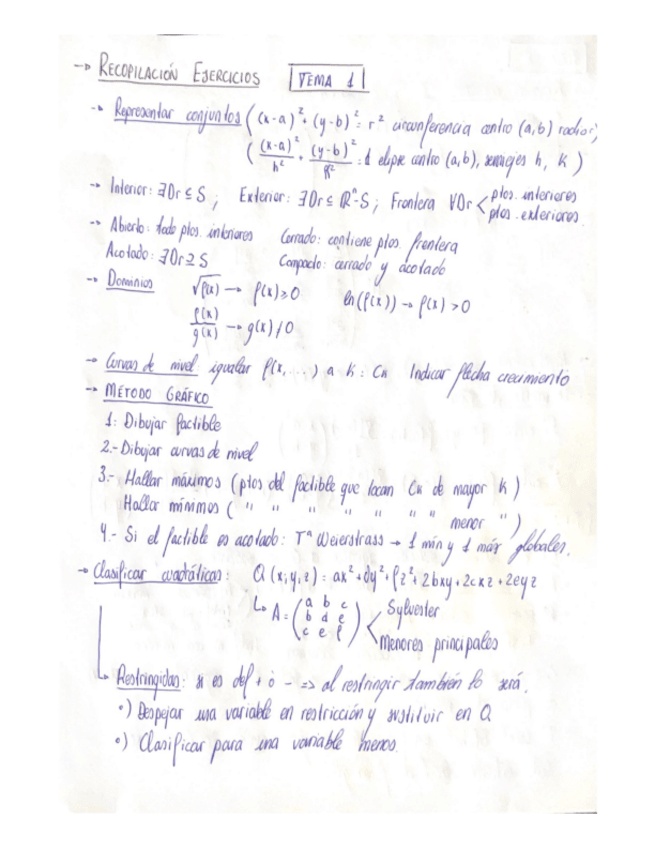 → RECOPILACIÓN EJERCICIOS TEMA 1
→ Representar conjuntos ( (x-a)² + (y-b)² = r² circunferencia centro (a,b) radio r)
( (x-a)²/h² + (y-b)²/k² = 1 elipse centro (a,b), semiejes h, k )
→ Interior: ∃Dr ⊆ S ; Exterior: ∃Dr ⊆ ℝⁿ-S ; Frontera ∀Dr < ptos. interiores
ptos. exteriores
→ Abierto: todo ptos. interiores Cerrado: contiene ptos. frontera
Acotado: ∃Dr ⊇ S Compacto: cerrado y acotado
→ Dominios √f(x) → f(x) ≥ 0 ln(f(x)) → f(x) > 0
f(x)/g(x) → g(x) ≠ 0
→ Curvas de nivel: igualar f(x,...) a k: Ck Indicar flecha crecimiento
→ MÉTODO GRÁFICO
1: Dibujar factible
2.- Dibujar curvas de nivel
3.- Hallar máximos (ptos del factible que tocan Ck de mayor k)
Hallar mínimos ( " " " " " " " menor " )
4.- Si el factible es acotado: Tª Weierstrass → 1 mín y 1 máx globales.
→ Clasificar cuadráticas: Q(x,y,z) = ax² + dy² + fz² + 2bxy + 2cxz + 2eyz
↳ A = ( a b c
b d e
c e f ) < Sylvester
Menores principales
↳ Restringidas: si es def + ó - => al restringir también lo será.
•) Despejar una variable en restricción y sustituir en Q
•) Clasificar para una variable menos.